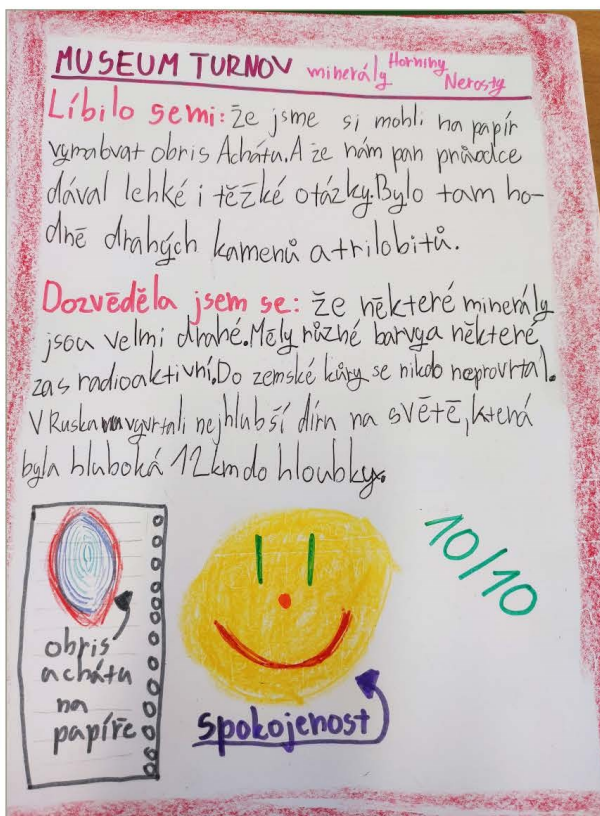 MUSEUM TURNOV minerály Horniny Nerosty
Líbilo semi: že jsme si mohli na papír
vyrabvat obris Achátu. A že nám pan průvodce
dával lehké i těžké otázky. Bylo tam ho-
dně drahých kamenů a trilobitů.
Dozvěděla jsem se: že některé minerály
jsou velmi drahé. Měly různé barvy a některé
zas radioaktivní. Do zemské kůry se nikdo neprovrtal.
V Rusku vyvrtali nejhlubší díru na světě, která
byla hluboká 12 km do hloubky.
obris
achátu
na
papíře
spokojenost
10/10